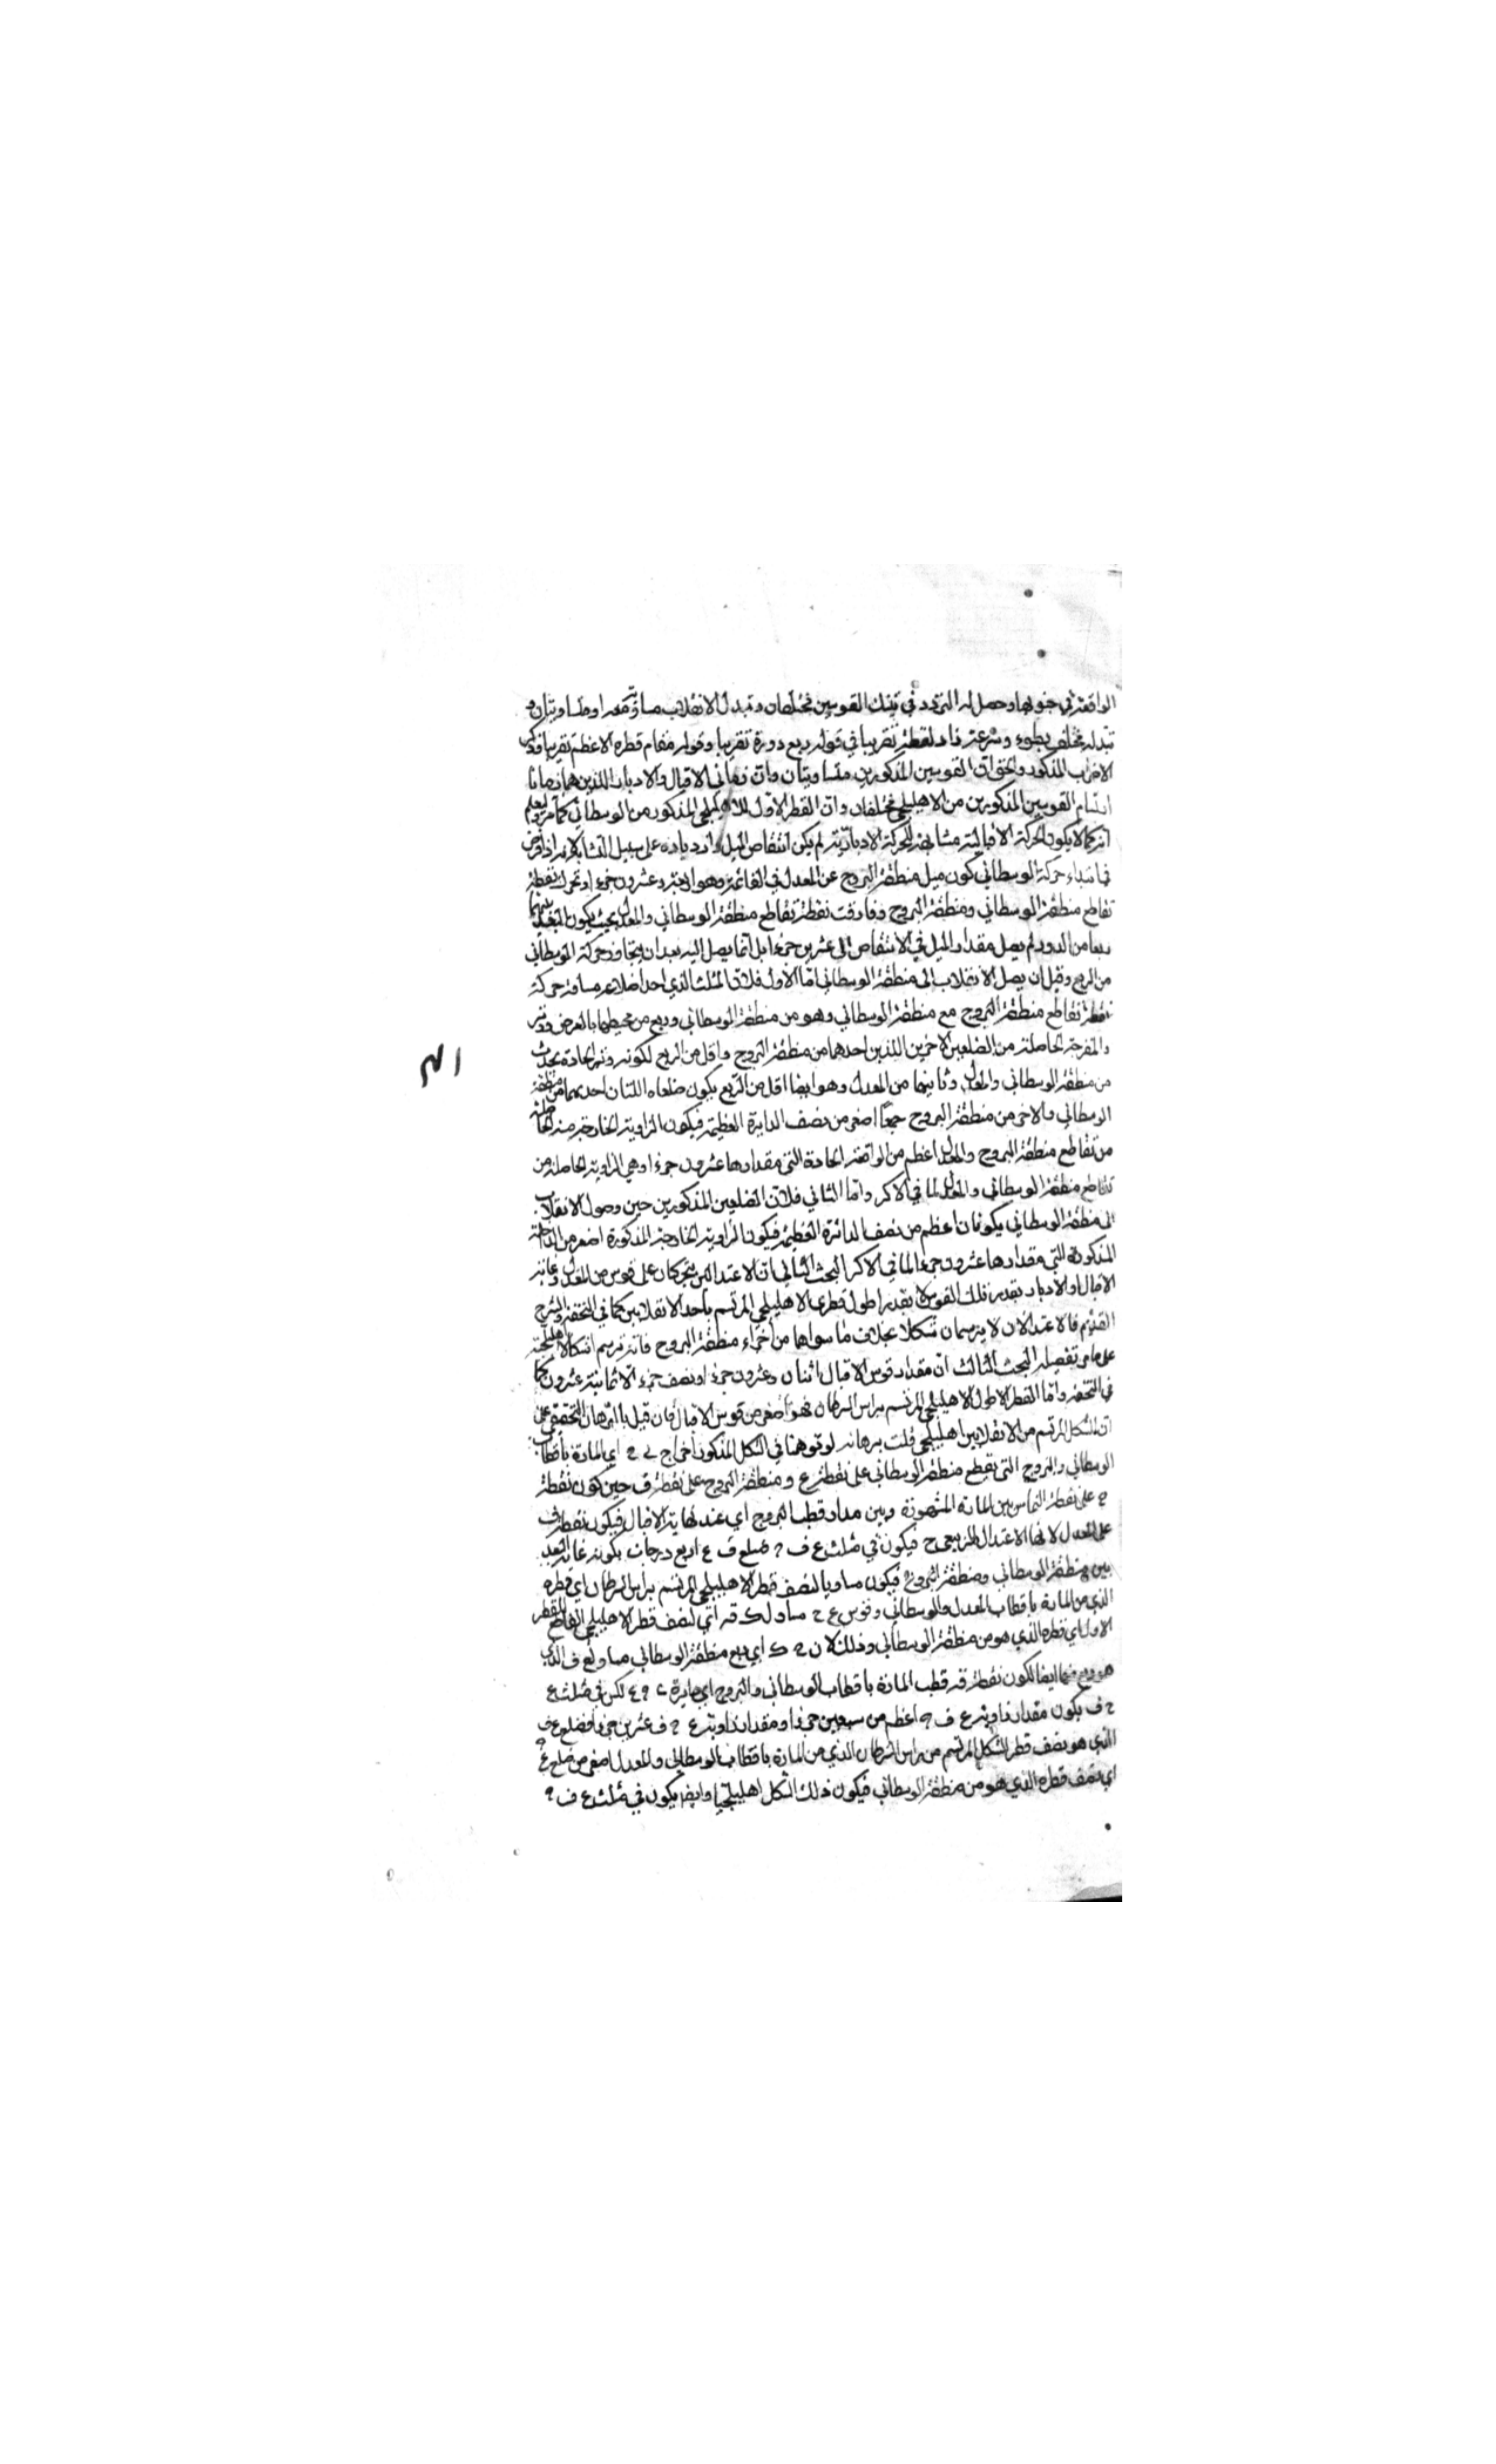 الواقعة في حولها وحصل له التردد في تينك القوسين مختلفان وتبدل الانقلاب مساوية معه او متساويتان و
تبدله مختلف بطوء وسرعة زاد لفظة تقريبا في قوله ربع دورة تقريبا وقوله مقام قطره الاعظم تقريبا
الاضراب المذكور والحق ان القوسين المذكورين متساويتان وان زماني الاقبال والادبار اللذين هما زمانا
ارتسام القوسين المذكورين من الاهليلجي مختلفان وان القطر الاول للاهليلجي المذكور من الوسطاني كما مر
انه كما لا يكون الحركة الاقبالية مشابهة للحركة الادبارية لم يكن انتقاص الميل وازدياده على سبيل التشابه لانه اذا فرض
في ابتداء حركة الوسطاني كون ميل منطقة البروج عن المعدل في الغاية وهو اربعة وعشرون جزءا وتحرك نقطة
تقاطع منطقة الوسطاني ومنطقة البروج وفارقت نقطة تقاطع منطقة الوسطاني والمعدل بحيث يكون البعد بينهما
ربعا من الدور لم يصل مقدار الميل في الانتقاص الى عشرين جزءا بل انما يصل اليه بعد ان يتجاوز حركة الوسطاني
من الربع وقبل ان يصل الانقلاب الى منطقة الوسطاني اما الاول فلان المثلث الذي احد اضلاعه مسافة حركة
نقطة تقاطع منطقة البروج مع منطقة الوسطاني وهو من منطقة الوسطاني وربع من محيطها بالفرض ووتر
والمنفرجة الحاصلة من الضلعين الاخرين اللذين احدهما من منطقة البروج واقل من الربع لكونه وتر الحادة بحدث
من منطقة الوسطاني والمعدل وثانيهما من المعدل وهو ايضا اقل من الربع يكون ضلعاه اللتان احدهما من منطقة
الوسطاني والاخر من منطقة البروج جمعا اصغر من نصف الدايرة العظيمة فيكون الزاوية الخارجة منه الحاصلة
من تقاطع منطقة البروج والمعدل اعظم من الواقعة الحادة التي مقدارها عشرون جزءا وهي الزاوية الحاصلة من
تقاطع منطقة الوسطاني والمعدل لما في الاكر واما الثاني فلان الضلعين المذكورين حين وصول الانقلاب
الى منطقة الوسطاني يكونان اعظم من نصف الدائرة العظيمة فيكون الزاوية الخارجة المذكورة اصغر من الداخلة
المذكورة التي مقدارها عشرون جزءا لما في الاكر البحث الثاني ان الاعتدالين يتحركان على قوس من المعدل وغاية
الاقبال او الادبار بقدر تلك القوس لا بقدر اطول قطري الاهليلجي المرتسم باحد الانقلابين كما في التحفة والشرح
القديم فالاعتدالان لا يرسمان شكلا بخلاف ما سواهما من اجزاء منطقة البروج فانه ترسم اشكالا اهليلجية
على ما مر تفصيله البحث الثالث ان مقدار قوس الاقبال اثنان وعشرون جزءا ونصف جزء الا ثمانية عشرون كما
في التحفة واما القطر الاطول الاهليلجي المرتسم براس السرطان فهو اصغر من قوس الاقبال فان قيل ما البرهان التحقيقي على
ان الشكل المرتسم من الانقلابين اهليلجي قلت برهانه لو توهمنا في الشكل المذكور اخراج اي المارة باقطاب
الوسطاني والبروج التي تقطع منطقة الوسطاني على نقطة ع ومنطقة البروج على نقطة ف حين كون نقطة
ح على نقطة التماس بين المارة المشهورة وبين مدار قطب البروج اي عند نهاية الاقبال فيكون نقطة ف
على المعدل لانها الاعتدال الربيعي ح فيكون في مثلث ع ف ح ضلع ف ع اربع درجات بكونه غاية البعد
بين منطقة الوسطاني ومنطقة البروج فيكون مساويا لنصف قطر الاهليلجي المرتسم براس السرطان اي قطره
الذي من المارة باقطاب المعدل والوسطاني وقوس ع ح مساو لك قه اي لنصف قطر الاهليلجي القاطع للقطر
الاول اي قطره الذي هو من منطقة الوسطاني وذلك لان ح ك اي ربع منطقة الوسطاني مساو لع ق الذي
هو ربع منها ايضا لكون نقطة قه قطب المارة باقطاب الوسطاني والبروج اي دايرة لكن في مثلث ع
ح ف يكون مقدار زاوية ع ف ح اعظم من سبعين جزءا ومقدار زاوية ع ح ف عشرين جزءا فضلع ع ف
الذي هو نصف قطر الشكل المرتسم من راس السرطان الذي من المارة باقطاب الوسطاني والمعدل اصغر من ضلع ع ح
اي نصف قطره الذي هو من منطقة الوسطاني فيكون ذلك الشكل اهليلجيا وايضا يكون في مثلث ع ف ح